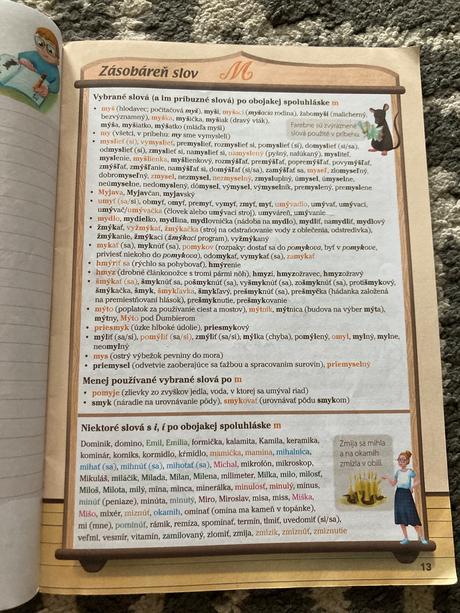 Zásobáreň slov M
Vybrané slová (a im príbuzné slová) po obojakej spoluhláske m
• myš (hlodavec; počítačová myš), myši, myšací (myšacia rodina), žabomyší (malicherný,
bezvýznamný), myška, myšička, myšiak (dravý vták),
mýša, myšiatko, mýšatko (mláďa myši)
Farebne sú zvýraznené
slová použité v príbehu.
• my (všetci, v príbehu: my sme vymysleli)
• myslieť (si), vymyslieť, premyslieť, rozmyslieť si, pomyslieť (si), domyslieť (si/sa),
odmyslieť (si), zmyslieť si, namyslieť si, namyslený (pyšný, nafúkaný), mysliteľ,
myslenie, myšlienka, myšlienkový, rozmýšľať, premýšľať, popremýšľať, povymýšľať,
zmýšľať, zmýšľanie, namýšľať si, domýšľať (si/sa), zamýšľať sa, myseľ, zlomyseľný,
dobromyseľný, zmysel, nezmysel, nezmyselný, zmysluplný, úmysel, úmyselne,
neúmyselne, nedomyslený, dômysel, výmysel, výmyselník, premyslený, premyslene
• Myjava, Myjavčan, myjavský
• umyť (sa/si), obmyť, omyť, premyť, vymyť, zmyť, myť, umývadlo, umývať, umývací,
umývač/umývačka (človek alebo umývací stroj), umyváreň, umývanie
• mydlo, mydielko, mydlina, mydlovnička (nádoba na mydlo), mydliť, namydliť, mydlový
• žmýkať, vyžmýkať, žmýkačka (stroj na odstraňovanie vody z oblečenia, odstredivka),
žmýkanie, žmýkací (žmýkací program), vyžmýkaný
• mykať (sa), myknúť (sa), pomykov (rozpaky: dostať sa do pomykova, byť v pomykove,
priviesť niekoho do pomykova), odomykať, vymykať (sa), zamykať
• hmýriť sa (rýchlo sa pohybovať), hmýrenie
• hmyz (drobné článkonožce s tromi pármi nôh), hmyzí, hmyzožravec, hmyzožravý
• šmýkať (sa), šmyknúť sa, pošmyknúť (sa), vyšmyknúť (sa), zošmyknúť (sa), protišmykový,
šmýkačka, šmyk, šmykľavka, šmykľavý, prešmyknúť (sa), prešmyčka (hádanka založená
na premiestňovaní hlások), prešmyknutie, prešmykovanie
• mýto (poplatok za používanie ciest a mostov), mýtnik, mýtnica (budova na výber mýta),
mýtny, Mýto pod Ďumbierom
• priesmyk (úzke hlboké údolie), priesmykový
• mýliť (sa/si), pomýliť (sa/si), zmýliť (sa/si), mýlka (chyba), pomýlený, omyl, mylný, mylne,
neomylný
• mys (ostrý výbežok pevniny do mora)
• priemysel (odvetvie zaoberajúce sa ťažbou a spracovaním surovín), priemyselný
Menej používané vybrané slová po m
• pomyje (zlievky zo zvyškov jedla, voda, v ktorej sa umýval riad)
• smyk (náradie na urovnávanie pôdy), smykovať (urovnávať pôdu smykom)
Niektoré slová s i, í po obojakej spoluhláske m
Dominik, domino, Emil, Emília, formička, kalamita, Kamila, keramika,
kominár, komiks, kormidlo, kŕmidlo, mamička, mamina, mihalnica,
mihať (sa), mihnúť (sa), mihotať (sa), Michal, mikrofón, mikroskop,
Mikuláš, miláčik, Milada, Milan, Milena, milimeter, Milka, milo, milosť,
Miloš, Milota, milý, mína, minca, minerálka, minulosť, minulý, mínus,
minúť (peniaze), minúta, minúty, Miro, Miroslav, misa, miss, Miška,
Mišo, mixér, miznúť, okamih, omínať (omína ma kameň v topánke),
mi (mne), pominúť, rámik, remíza, spomínať, termín, tlmiť, uvedomiť (si/sa),
veľmi, vesmír, vitamín, zamilovaný, zlomiť, zmija, zmizík, zmiznúť, zmiznutie
Zmija sa mihla
a na okamih
zmizla v obilí.
13